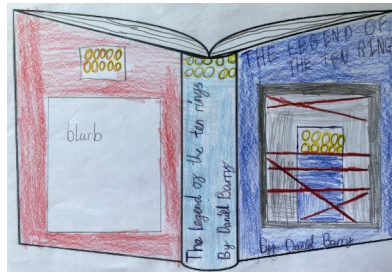 blurb
The legend of the ten rings
By Daniel Barry
THE LEGEND OF
THE TEN RINGS
by Daniel Barry